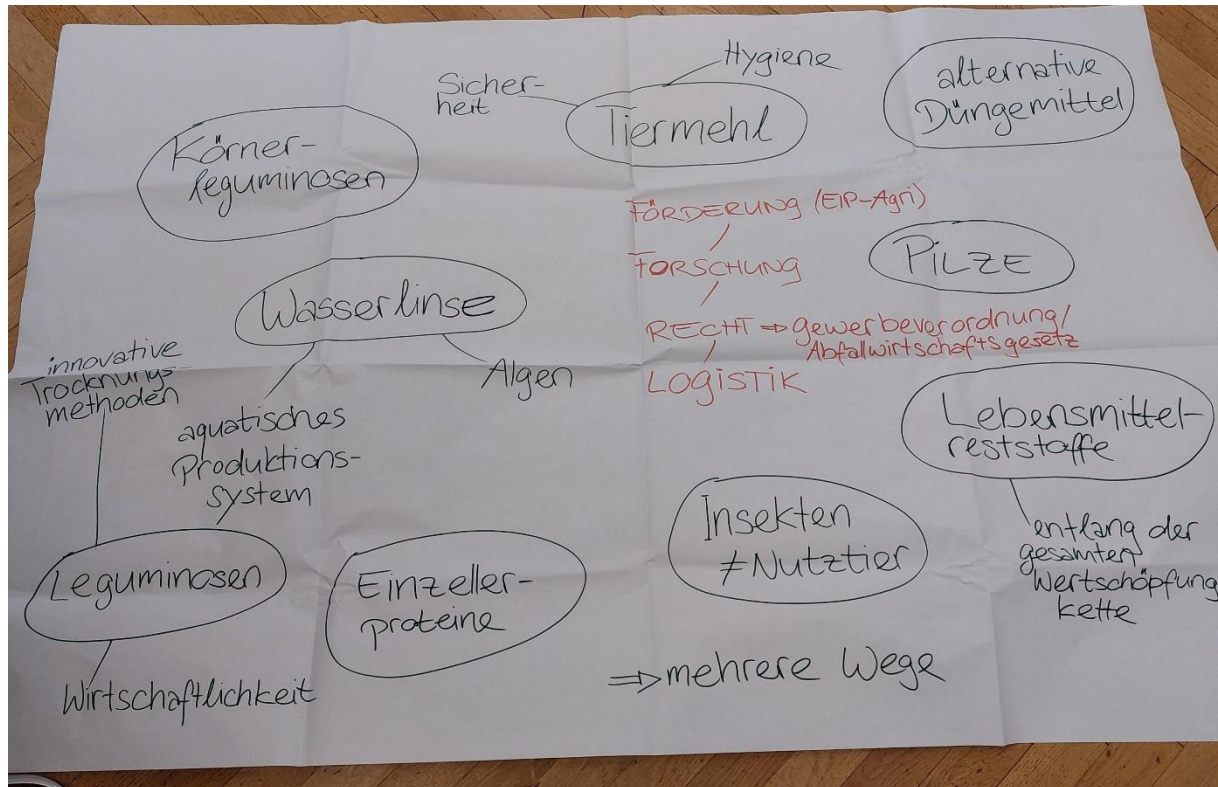 Hygiene
Sicher-
heit
Tiermehl
alternative
Düngemittel
Körner-
leguminosen
FÖRDERUNG (EIP-Agri)
FORSCHUNG
RECHT ⇒ gewerbeverordnung/
Abfallwirtschaftsgesetz
LOGISTIK
PILZE
Wasserlinse
Algen
innovative
Trocknungs-
methoden
aquatisches
Produktions-
system
Lebensmittel-
reststoffe
entlang der
gesamten
Wertschöpfung
kette
Insekten
≠Nutztier
Leguminosen
Einzeller-
proteine
Wirtschaftlichkeit
⇒mehrere Wege